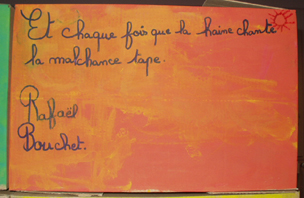 Et chaque fois que la haine chante
la malchance tape.
Rafaël
Bouchet.